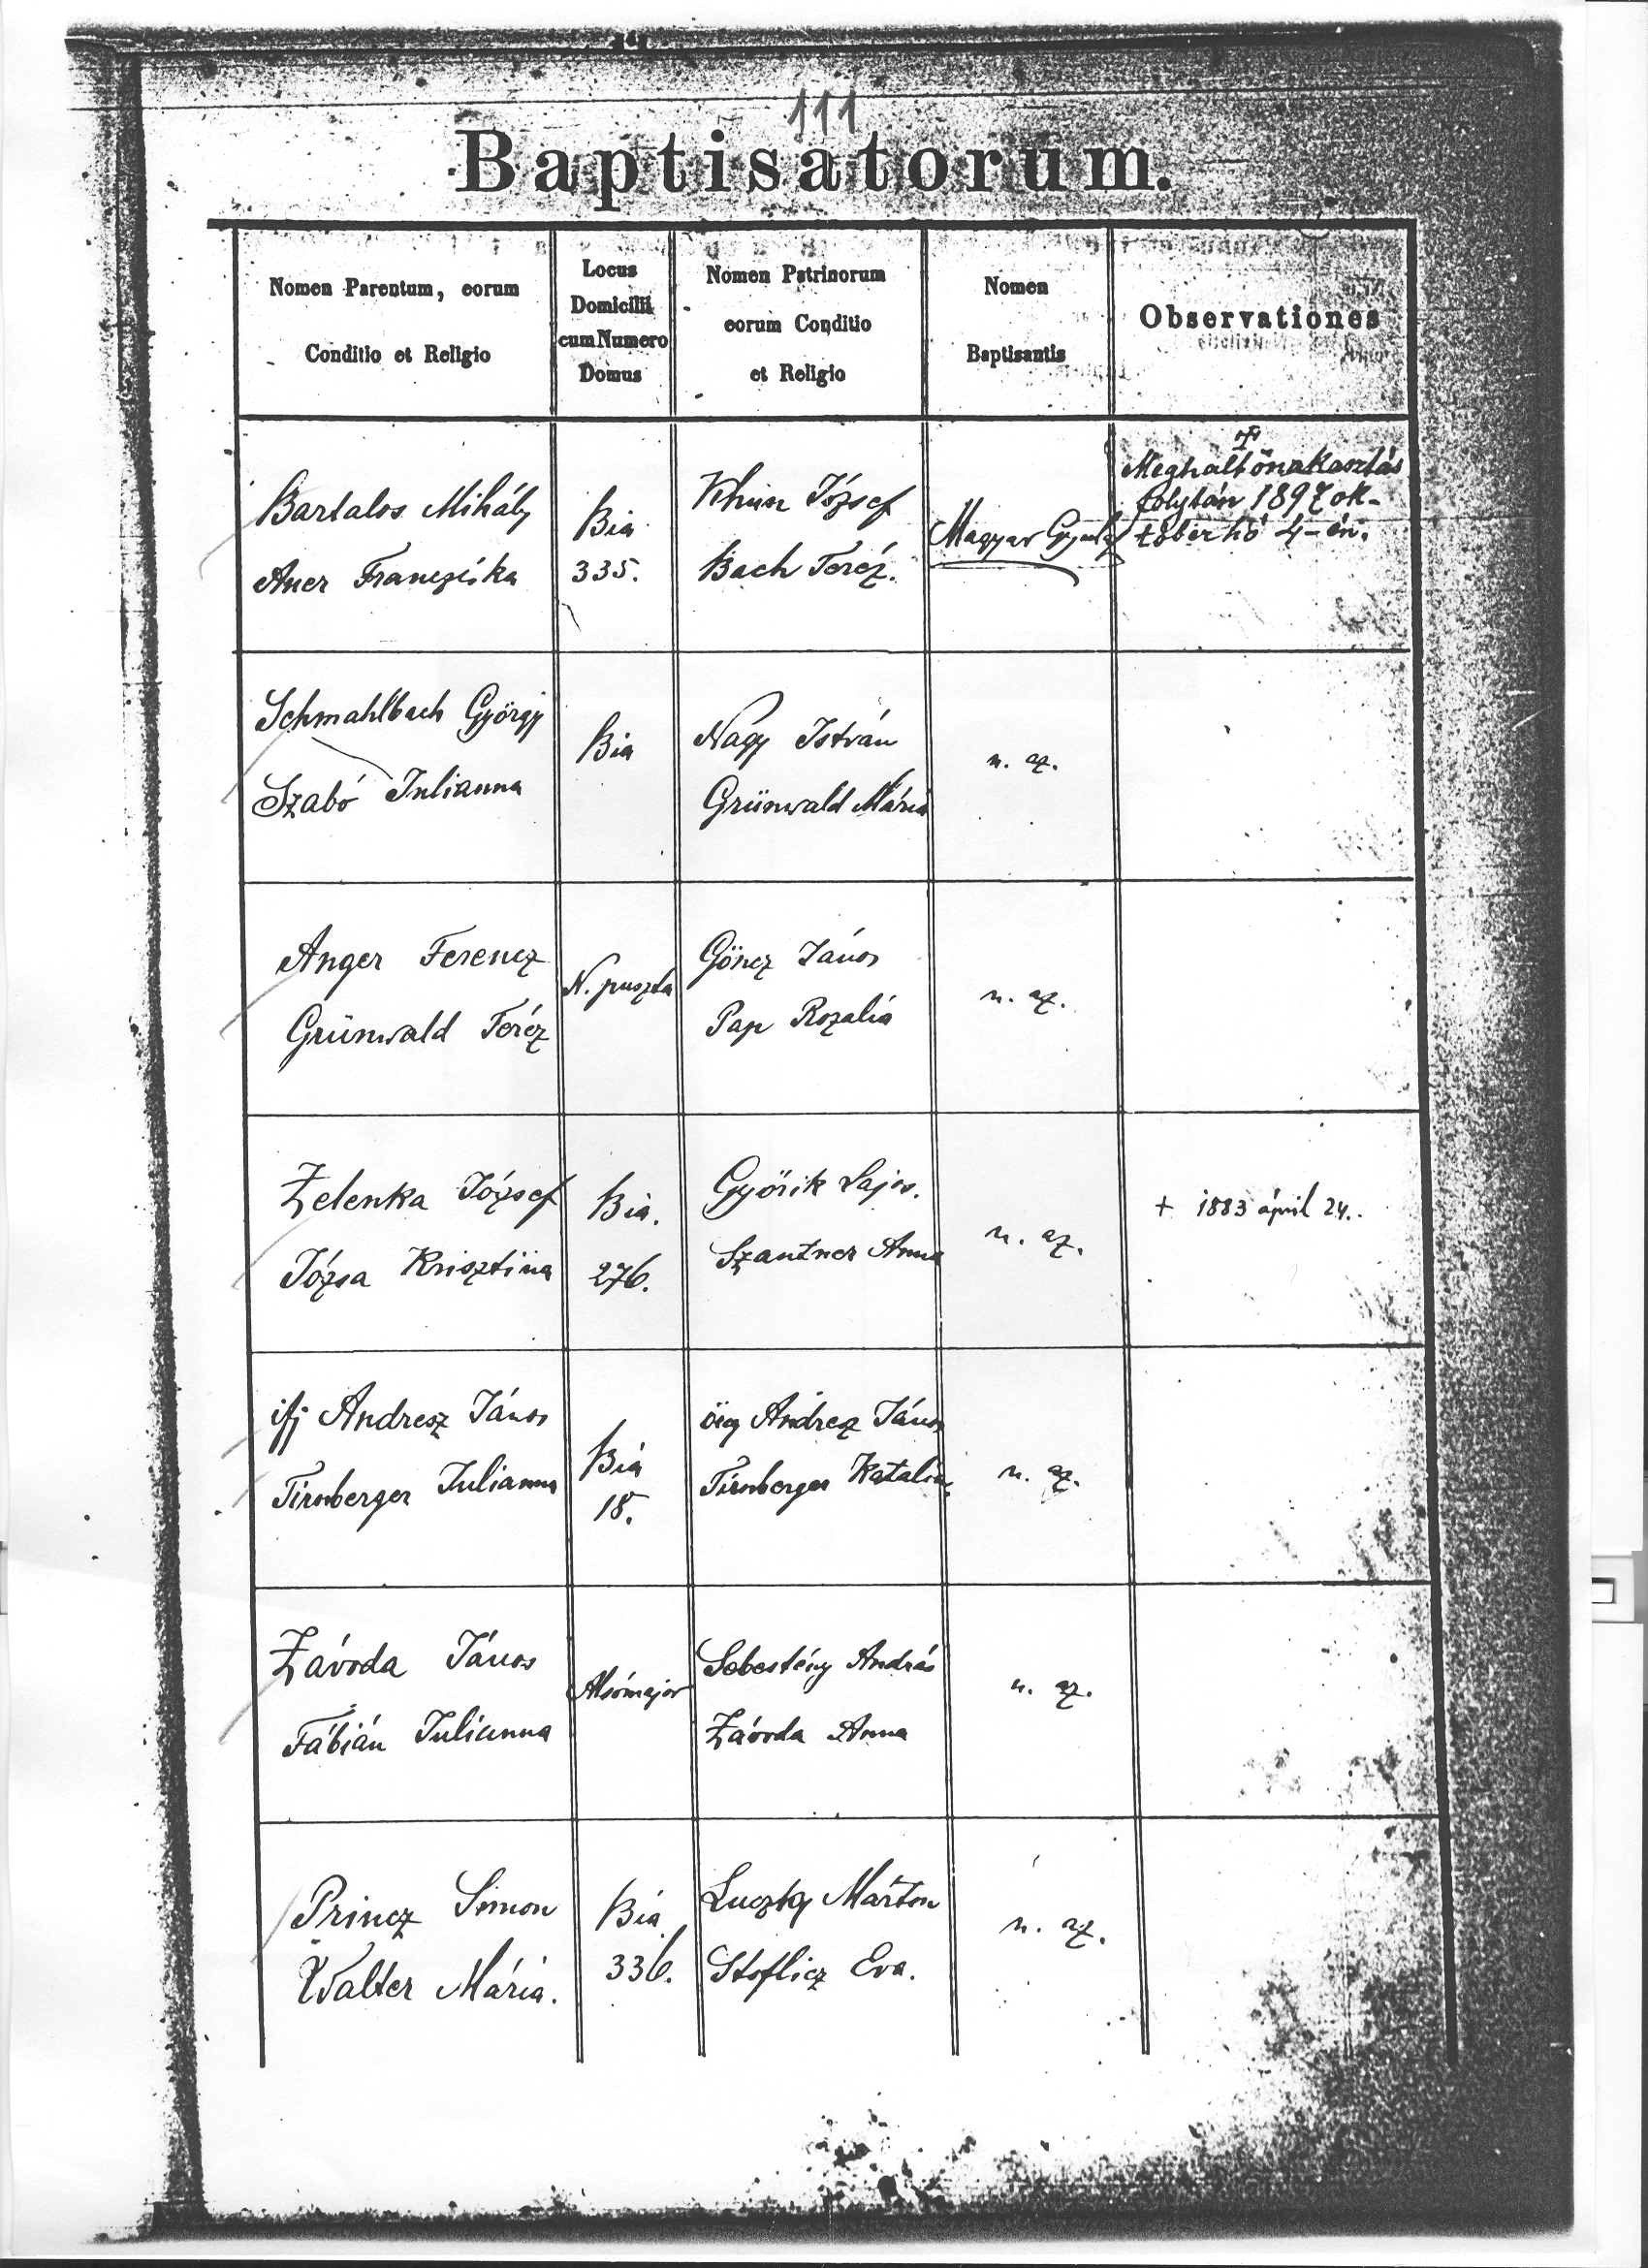 111
Baptisatorum.
Nomen Parentum, eorum
Conditio et Religio
Locus
Domicilii
cum Numero
Domus
Nomen Patrinorum
eorum Conditio
et Religio
Nomen
Baptisantis
Observationes
Bartalos Mihály
Auer Francziska
Bia
335.
Khun József
Bach Teréz.
Magyar Gyula
Meghalt önakasztás
folytán 1897 ok-
tóber hó 4-én.
Schmahlbach György
Szabó Julianna
Bia
Nagy István
Grünwald Mária
u. az.
Anger Ferencz
Grünwald Teréz
N. puszta
Göncz János
Pap Rozalia
u. az.
Zelenka József
Józsa Krisztina
Bia.
276.
Györik Lajos.
Szantner Anna
u. az.
+ 1883 ápril 24..
ifj Andresz János
Tirnberger Julianna
Bia
18.
öreg Andresz János
Tirnberger Katalin
u. az.
Závoda János
Fábián Julianna
Alsómajor
Sebestény András
Závoda Anna
u. az.
Princz Simon
Walter Mária.
Bia
336.
Luczky Márton
Stoflicz Eva.
u. az.